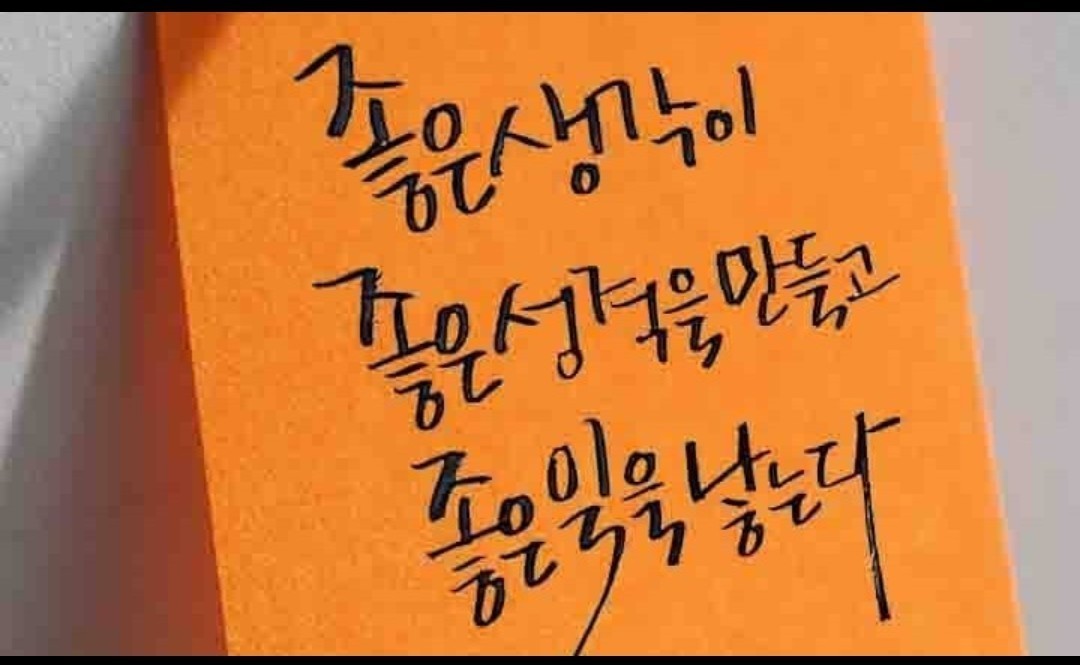 좋은생각이
좋은성격을만들고
좋은일을낳는다